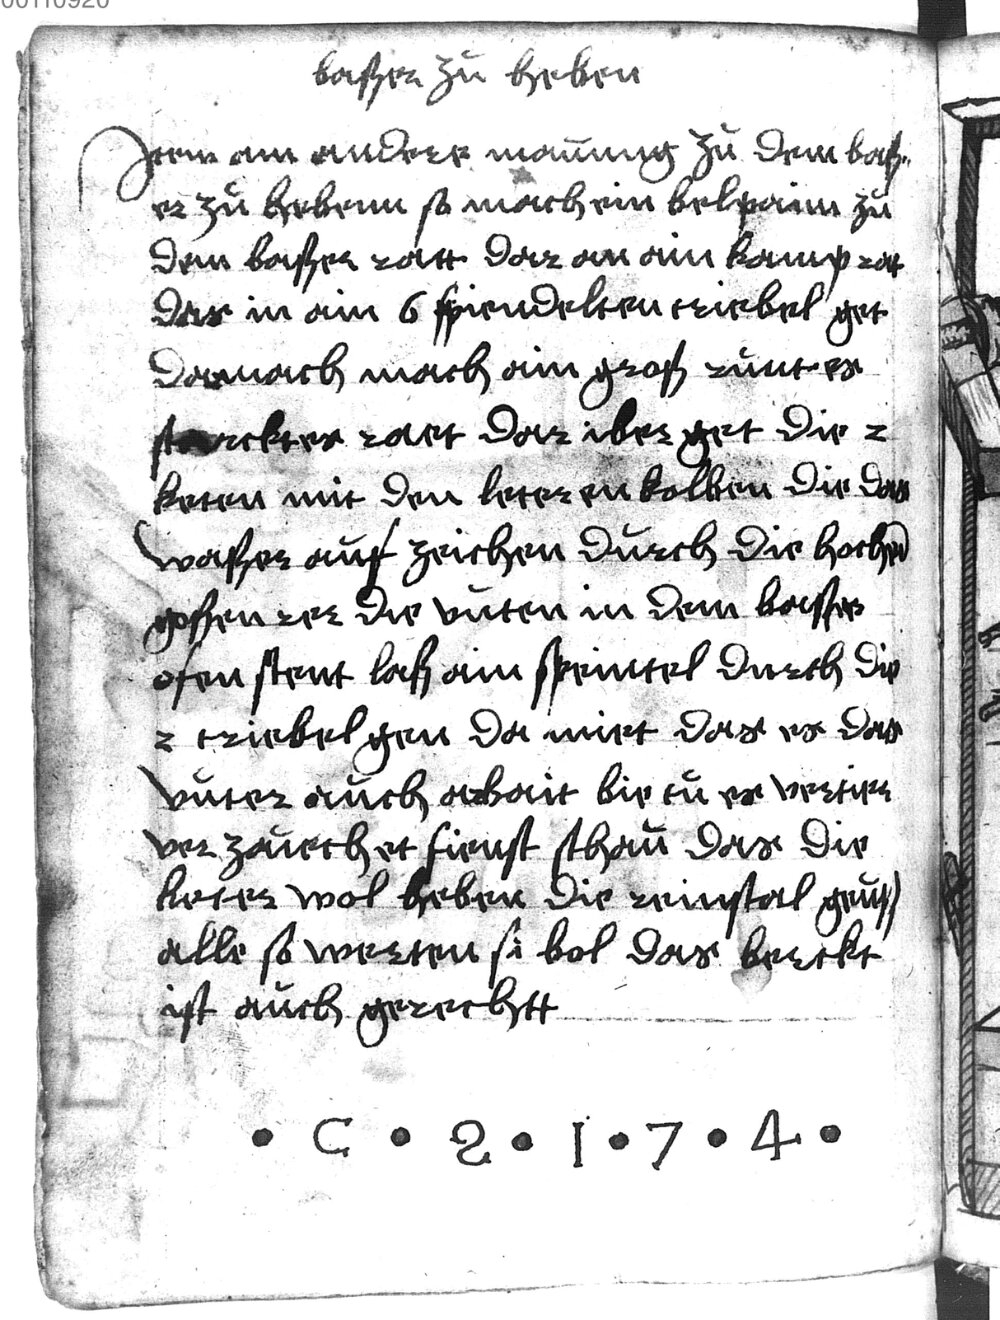 00110920
baßer zu heben
Jtem am andere manung zu dem baß-
er zu hebenn so mach ein belpaim zu
dem baßer ratt dar an ain kamp rat
das in ain 6 spiendelten triebel get
darnach mach ain groß runtes
starcktes raet dar iber get die 2
keten mit den leteren kolben die das
waßer auf zeichen durch die hochen
goßen rer die vnten in dem baßer
ofen stent laß ain speintel durch die
2 triebel gen da miet das es das
vnter auch arbait bie tu es
verzauechet fienst schau das die
keter wol heben die reinstal
alle so werten si bol das berckt
ist auch gerechtt
• C • 2 • 1 • 7 • 4 •